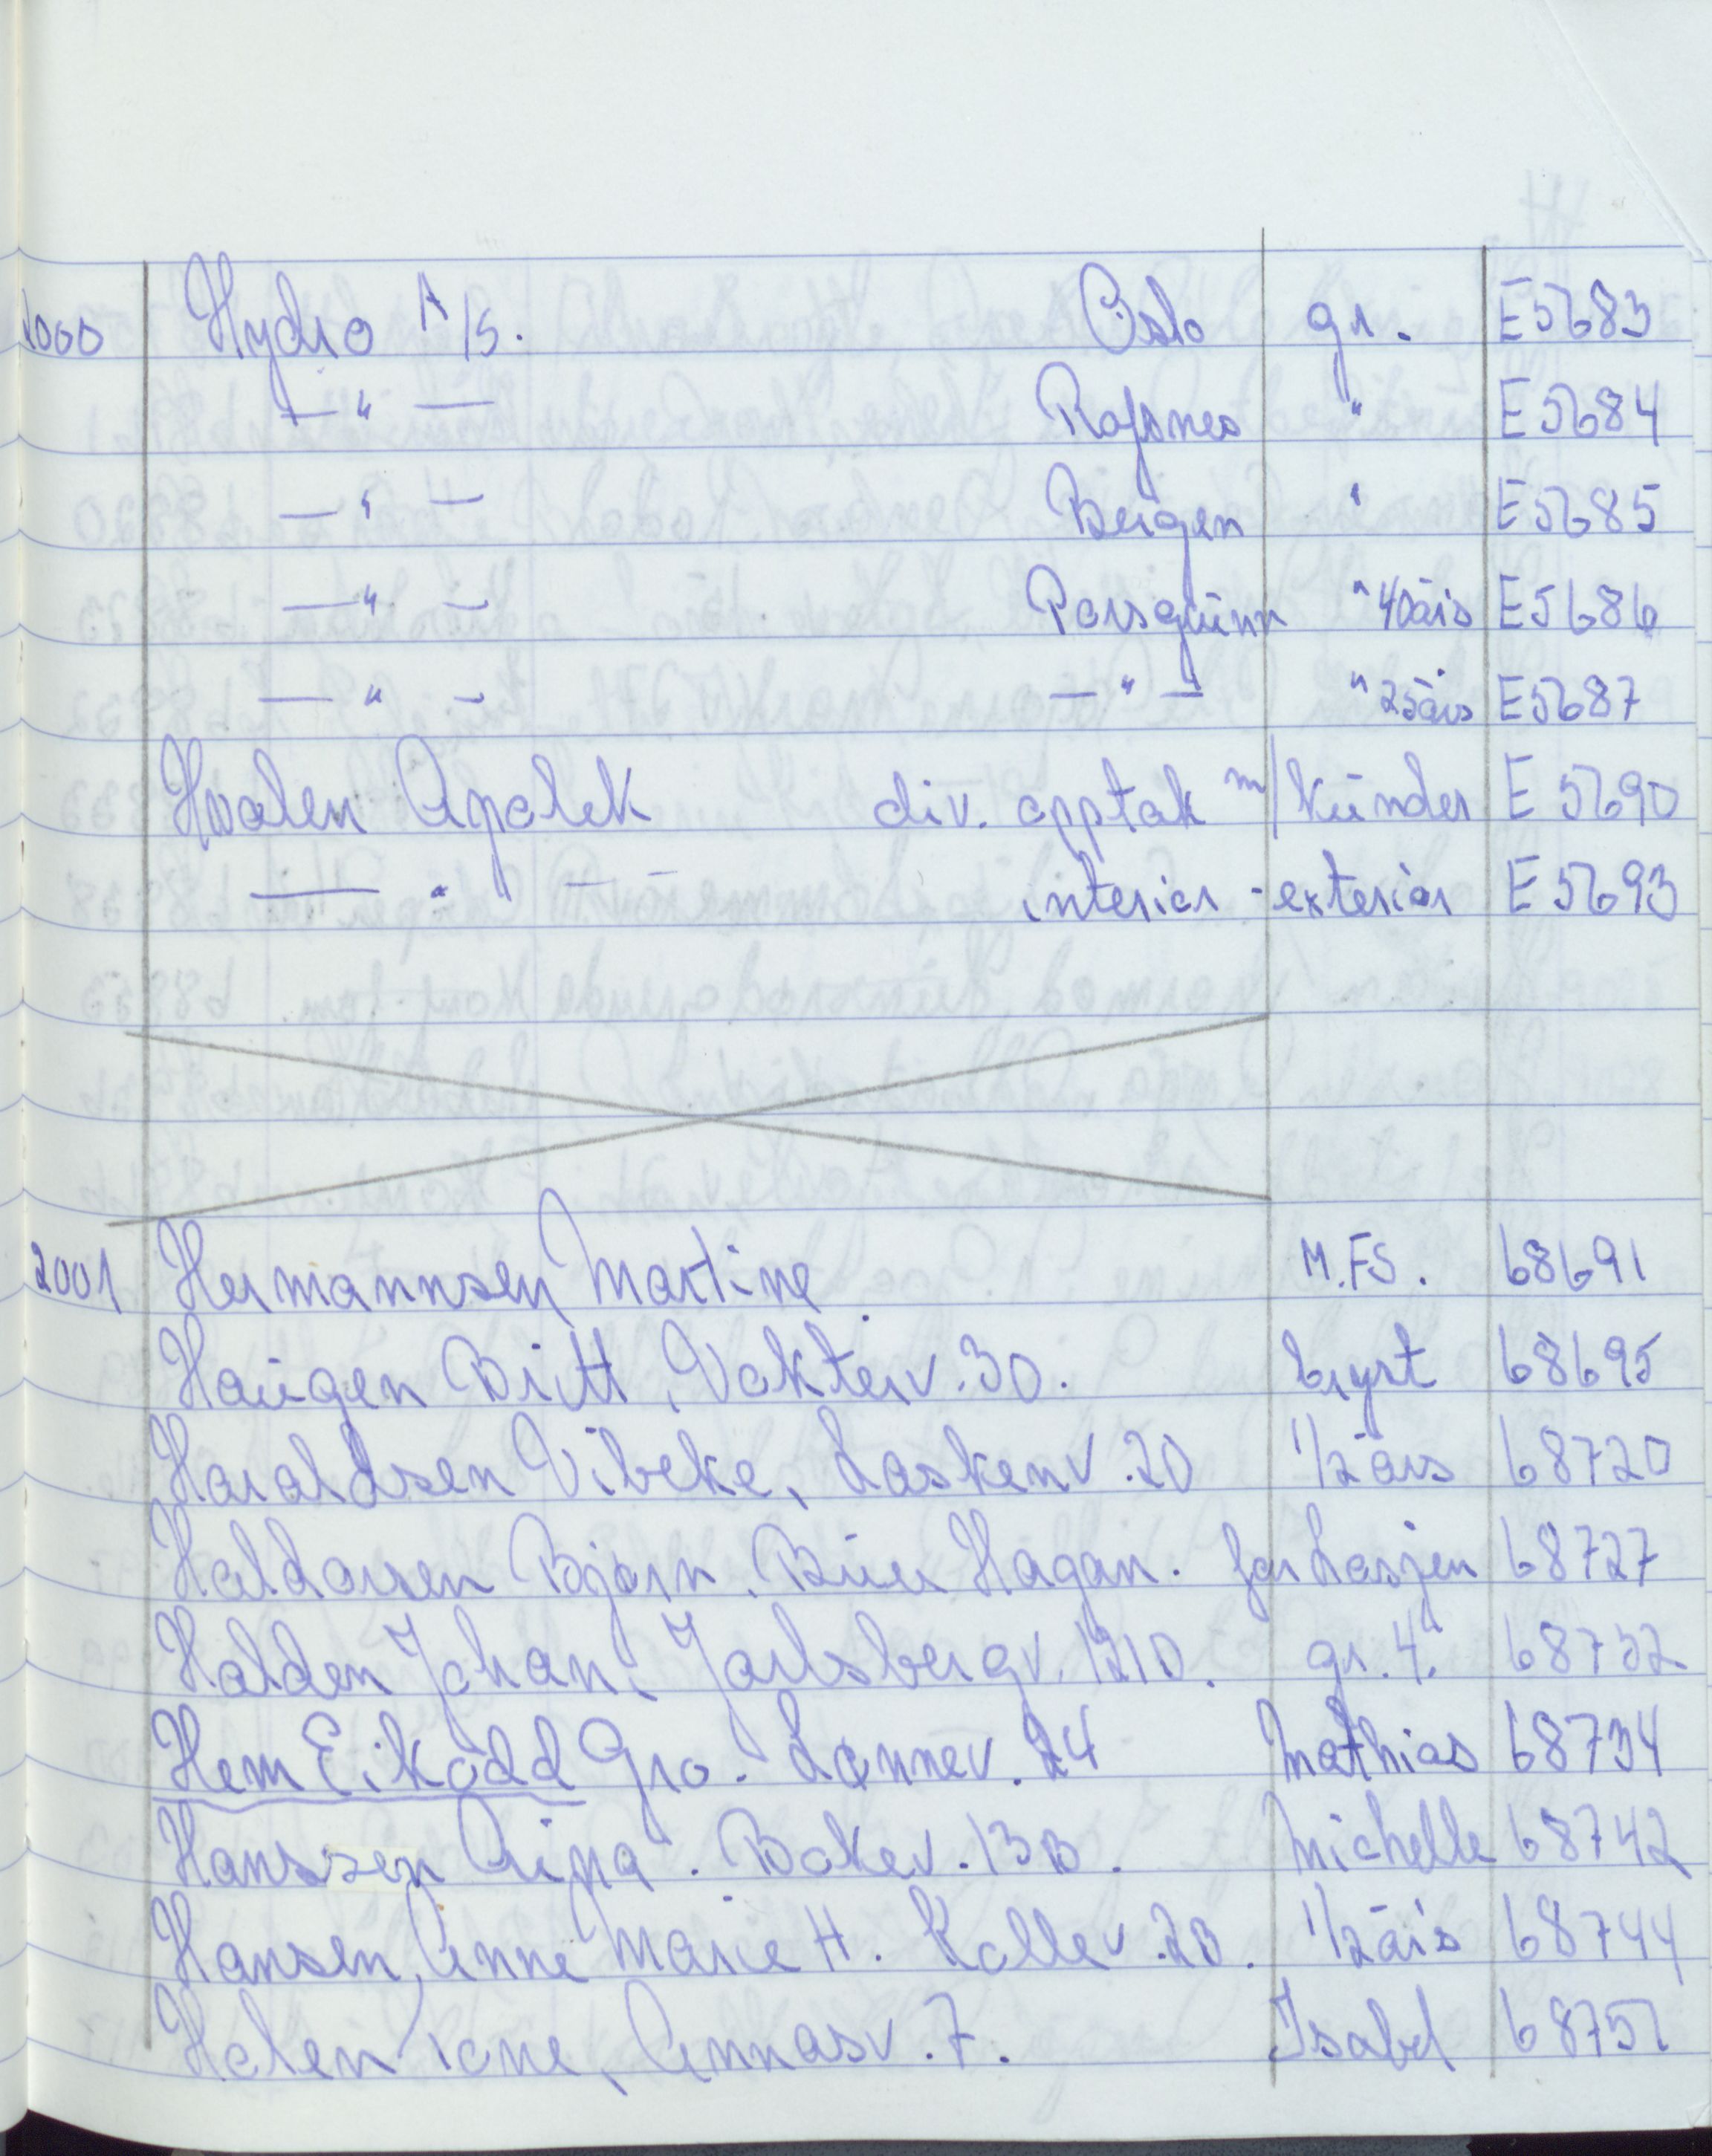 2000 Hydro A/S. Oslo gr. E5683
— " — Rafsnes " E5684
— " — Bergen " E5685
— " — Porsgrunn " 40års E5686
— " — — " — " 25års E5687
Hvalen Apotek div. opptak m/kunder E 5690
— " — interiør - exteriør E 5693
2001 Hermannsen Martine M.FS. 68691
Haugen Britt, Vakterv. 30. bryst 68695
Haraldsen Vibeke, Laskenv. 20 1/2års 68720
Haldorsen Bjørn. Buer Hagan. 68727
Halden Johan, Jarlsbergv. 121D. gr. 4. 68732
Hem Eikødd Gro. Lønnev. 24 Mathias 68734
Hanssen Aina. Bøkev. 13B. Michelle 68742
Hansen, Anne Marie H. Kollev. 2B. 1/2års 68744
Holen Tone, Annasv. 7. Isabel 68751